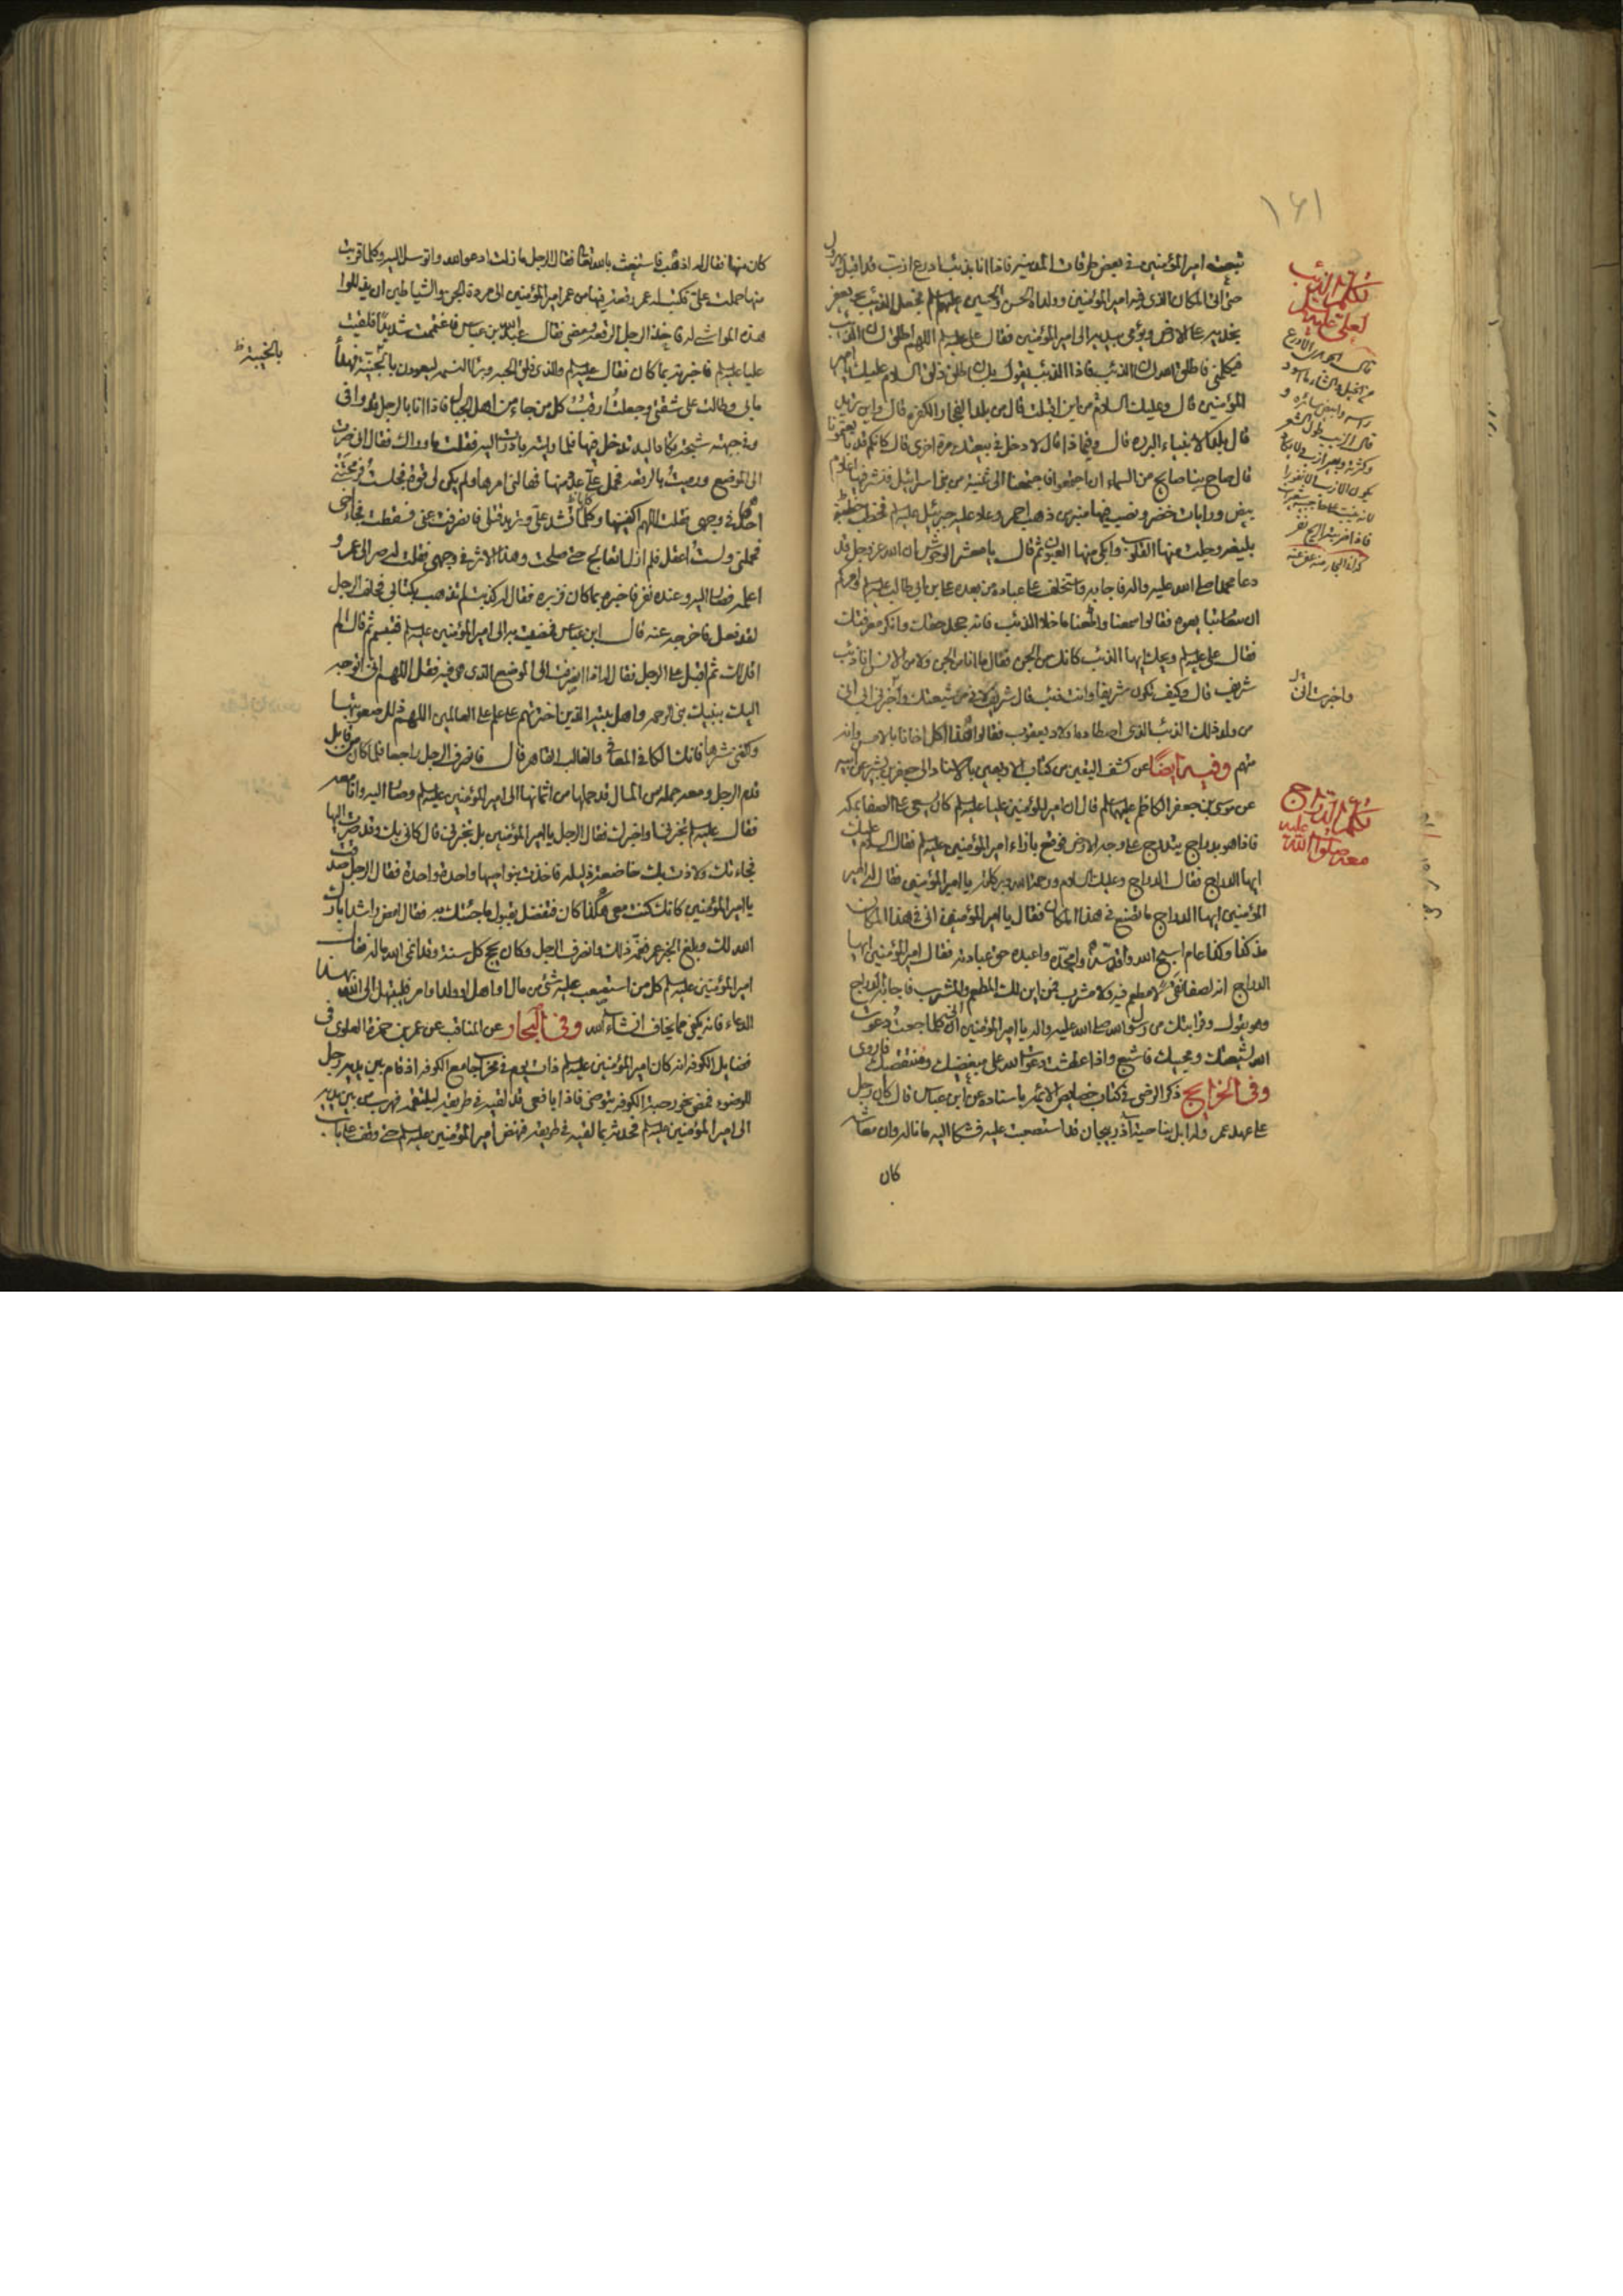 ١٦١
تبعت امير المؤمنين في بعض طرقات المدينة فاذا انا بذئب ادرع ازب قد اقبل يهرول
حتى اتى المكان الذي فيه امير المؤمنين وولداه الحسن والحسين عليهم السلم فجعل الذئب يعفر
بخديه على الارض ويؤمي بيديه الى امير المؤمنين فقال علي عليه السلم اللهم اطلق لسان الذئب
فيكلمني فاطلق الله لسان الذئب فاذا الذئب يقول بلسان طلق ذلق السلام عليك يا امير
المؤمنين قال وعليك السلام من اين اقبلت قال من بلد الفجار الكفرة قال واين تريد
قال بلد الانبياء البررة قال وفيما ذا قال لادخل في بيعتك مرة اخرى قال كانكم قد بايعتمونا
قال صاح بنا صايح من السماء ان اجتمعوا فاجتمعنا الى ثنية من بني اسرائيل فنشر فيها اعلام
بيض ورايات خضر ونصب فيها منبر من ذهب احمر وعلا عليه جبرئيل عليه السلم فخطب خطبة
بليغة وجلت منها القلوب وابكى منها العيون ثم قال يا معشر الوحوش ان الله عز وجل قد
دعا محمدا صلى الله عليه واله فاجابه واستخلف على عباده من بعده علي بن ابي طالب عليه السلم وامركم
ان تبايعوه فقالوا سمعنا واطعنا ما خلا الذئب فانه جحد حقك وانكر معرفتك
فقال علي عليه السلم ويحك ايها الذئب كانك من الجن فقال ما انا من الجن ولا من الانس انا ذئب
شريف قال وكيف تكون شريفا وانت ذئب قال شريف لاني من شيعتك واخبرني ابي اني
من ولد ذلك الذئب الذي اصطاده اولاد يعقوب فقالوا هذا اكل اخانا بالامس وانه
متهم وفيه ايضا عن كشف اليقين من كتاب الاربعين بالاسناد الى جعفر بن بشر عن ابيه
عن موسى بن جعفر الكاظم عليهما السلم قال ان امير المؤمنين عليا عليه السلم كان يسعى على الصفا بمكة
فاذا هو بدراج يتدرج على وجه الارض فوقع بازاء امير المؤمنين عليه السلم فقال السلام عليك
ايها الدراج فقال الدراج وعليك السلام ورحمة الله وبركاته يا امير المؤمنين فقال له امير
المؤمنين ايها الدراج ما تصنع في هذا المكان فقال يا امير المؤمنين اني في هذا المكان
منذ كذا وكذا عام اسبح الله واقدسه وامجده واعبده حق عبادته فقال امير المؤمنين ايها
الدراج انه لصفا نقي لا مطعم فيه ولا مشرب فمن اين لك المطعم والمشرب فاجابه الدراج
وهو يقول وقرابتك من رسول الله صلى الله عليه واله يا امير المؤمنين اني كلما جعت دعوت
الله لشيعتك ومحبيك فاشبع واذا عطشت دعوت الله على مبغضيك ومنتقصيك فاروى
وفي الخرايج ذكر الرضي في كتاب خصايص الائمة باسناده عن ابن عباس قال كان رجل
على عهد عمر وله ابل بناحية آذربيجان قد استصعبت عليه فشكا اليه ما ناله وان معاشه
كان
تكلم الذئب
لعلي عليه السلم
تكلم الدراج
معه صلوات الله عليه
واخبرت اني
كان منها فقال له اذهب فاستغث بالله تعالى فقال الرجل ما زلت ادعو الله واتوسل اليه وكلما قربت
منها حملت علي فكتب له عمر رقعة فيها من عمر امير المؤمنين الى مردة الجن والشياطين ان يذللوا
هذه المواشي له فاخذ الرجل الرقعة ومضى فقال عبد الله بن عباس فاغتممت شديدا فلقيت
عليا عليه السلم فاخبرته بما كان فقال عليه السلم والذي فلق الحبة وبرأ النسمة ليعودن بالخيبة فهدأ
ما بي وطالت علي شقتي وجعلت ارقب كل من جاء من اهل الجبال فاذا انا بالرجل قد وافى
وفي جبهته شجة تكاد اليد تدخل فيها فلما رايته بادرت اليه فقلت ما وراك فقال اني صرت
الى الموضع ورميت بالرقعة فحمل علي عداد منها فهالني امرها ولم يكن لي قوة فجلست فرمحتني
احدها في وجهي فقلت اللهم اكفنيها وكلها تشد علي وتريد قتلي فانصرفت عني فسقطت فجاء اخي
فحملني ولست اعقل فلم ازل اتعالج حتى صلحت وهذا الاثر في وجهي فقلت له صر الى عمر و
اعلمه فصار اليه وعنده نفر فاخبره بما كان فزبره فقال له كذبت لم تذهب بكتابي فحلف الرجل
لقد فعل فاخرجه عنه قال ابن عباس فمضيت به الى امير المؤمنين عليه السلم فتبسم ثم قال الم
اقل لك ثم اقبل على الرجل فقال له اذا انصرفت الى الموضع الذي هي فيه فقل اللهم اني اتوجه
اليك بنبيك نبي الرحمة واهل بيته الذين اخترتهم على علم على العالمين اللهم ذلل صعوبتها
واكفني شرها فانك الكافي المعافي والغالب القاهر قال فانصرف الرجل راجعا فلما كان من قابل
قدم الرجل ومعه جملة من المال قد حملها من اثمانها الى امير المؤمنين عليه السلم وصار اليه وانا معه
فقال عليه السلم تخبرني او اخبرك فقال الرجل يا امير المؤمنين بل تخبرني قال كاني بك وقد صرت اليها
فجاءتك ولاذت بك خاضعة ذليلة فاخذت بنواصيها واحدة واحدة فقال الرجل صدقت
يا امير المؤمنين كانك كنت معي هكذا كان فتفضل بقبول ما جئتك به فقال امض راشدا بارك
الله لك وبلغ الخبر عمر فغمه ذلك وانصرف الرجل وكان يحج كل سنة وقد انمى الله ماله فقال
امير المؤمنين عليه السلم كل من استصعب عليه شيء من مال او اهل او ولد او امر فليبتهل الى الله بهذا
الدعاء فانه يكفى مما يخاف انشاء الله وفي البحار عن المناقب عن عمر بن حمزة العلوي في
فضايل الكوفة انه كان امير المؤمنين عليه السلم ذات يوم في محراب جامع الكوفة اذ قام بين يديه رجل
للوضوء فمضى نحو رحبة الكوفة يتوضى فاذا بافعى قد لقيه في طريقه ليلتقمه فهرب من بين يديه
الى امير المؤمنين عليه السلم فحدثه بما لقيه في طريقه فنهض امير المؤمنين عليه السلم حتى وقف على باب
بالخيبة ظ